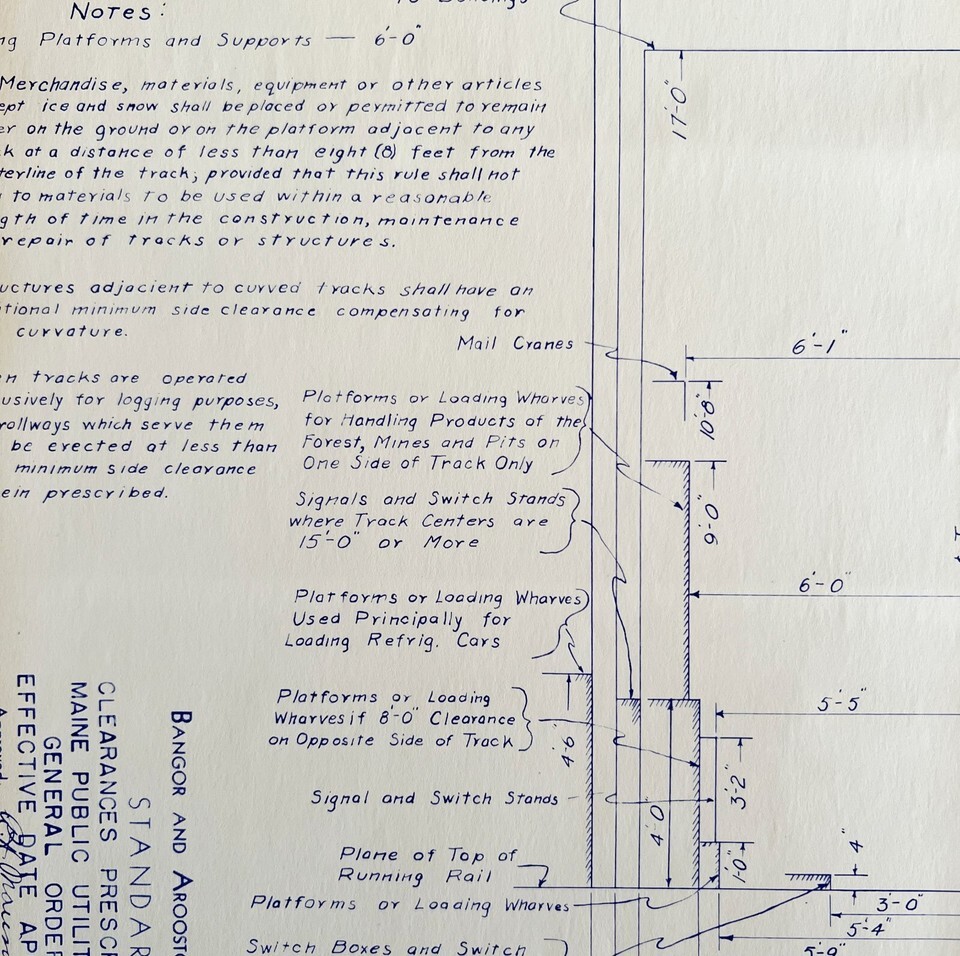 To Buildings
NOTES:
ng Platforms and Supports — 6'-0"
Merchandise, materials, equipment or other articles
ept ice and snow shall be placed or permitted to remain
er on the ground or on the platform adjacent to any
k at a distance of less than eight (8) feet from the
terline of the track; provided that this rule shall not
to materials to be used within a reasonable
gth of time in the construction, maintenance
repair of tracks or structures.
uctures adjacient to curved tracks shall have an
tional minimum side clearance compensating for
curvature.
en tracks are operated
usively for logging purposes,
rollways which serve them
be erected at less than
minimum side clearance
ein prescribed.
Mail Cranes
Platforms or Loading Wharves
for Handling Products of the
Forest, Mines and Pits on
One Side of Track Only
Signals and Switch Stands
where Track Centers are
15'-0" or More
Platforms or Loading Wharves
Used Principally for
Loading Refrig. Cars
Platforms or Loading
Wharves if 8'-0" Clearance
on Opposite Side of Track
Signal and Switch Stands
Plane of Top of
Running Rail
Platforms or Loading Wharves
Switch Boxes and Switch
17'-0"
6'-1"
10'-8"
9'-0"
6'-0"
5'-5"
4'-6"
3'-2"
4'-0
1'-0"
4"
3'-0"
5'-4"
5'-9"
BANGOR AND AROOSTO
STANDAR
CLEARANCES PRESCR
MAINE PUBLIC UTILIT
GENERAL ORDER
EFFECTIVE DATE AP